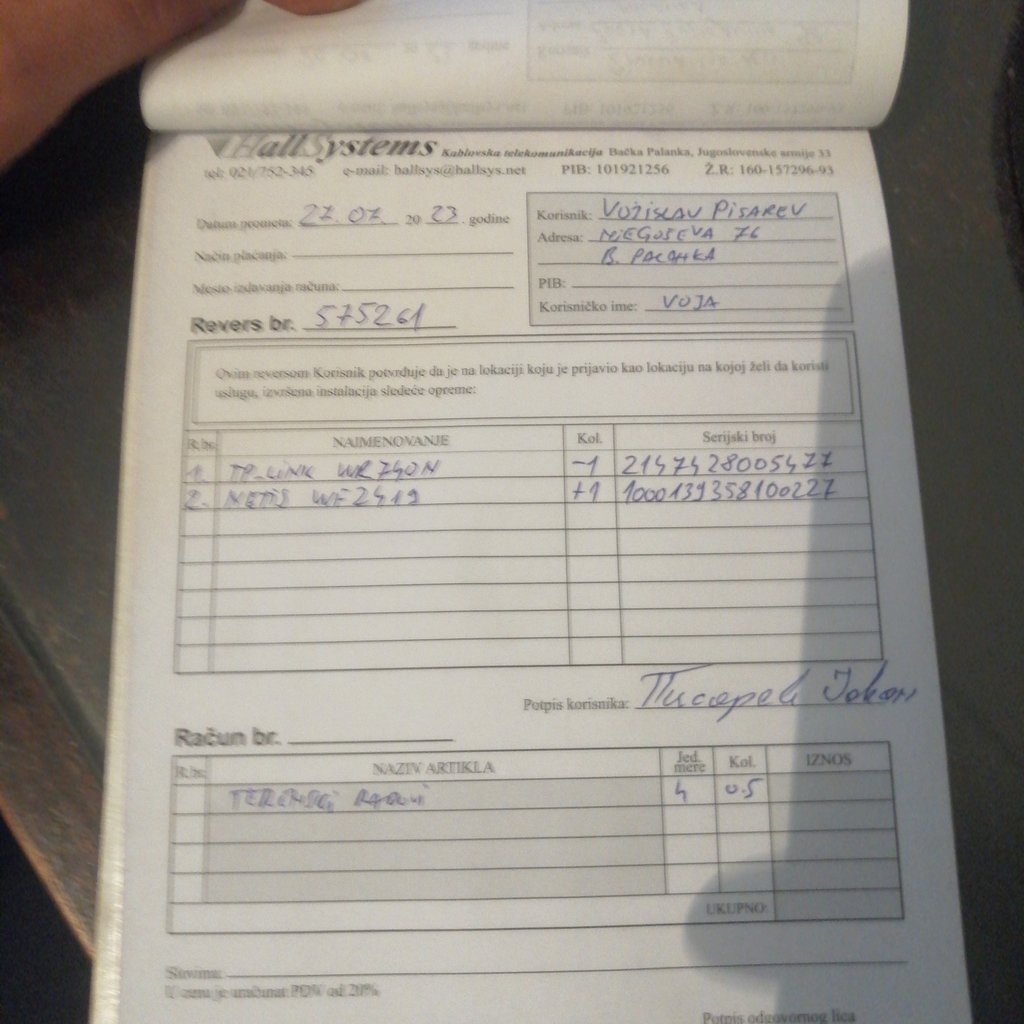 HallSystems Kablovska telekomunikacija Bačka Palanka, Jugoslovenske armije 33
tel: 021/752-345 e-mail: hallsys@hallsys.net PIB: 101921256 Ž.R: 160-157296-93
Datum prometa: 27.07. 20 23. godine
Način plaćanja:
Mesto izdavanja računa:
Revers br. 575261
Korisnik: VOJISLAV PISAREV
Adresa: NJEGOŠEVA 76
B. PALANKA
PIB:
Korisničko ime: VOJA
Ovim reversom Korisnik potvrđuje da je na lokaciji koju je prijavio kao lokaciju na kojoj želi da koristi
uslugu, izvršena instalacija sledeće opreme:
R.br. NAIMENOVANJE Kol. Serijski broj
1. TP-LINK WR740N -1 2147428005477
2. NETIS WF2419 +1 1000139358100227
Potpis korisnika: Писарев
Račun br.
R.br. NAZIV ARTIKLA Jed. mere Kol. IZNOS
TERENSKI RADOVI h 0.5
UKUPNO:
Slovima:
U cenu je uračunat PDV od 20%
Potpis odgovornog lica